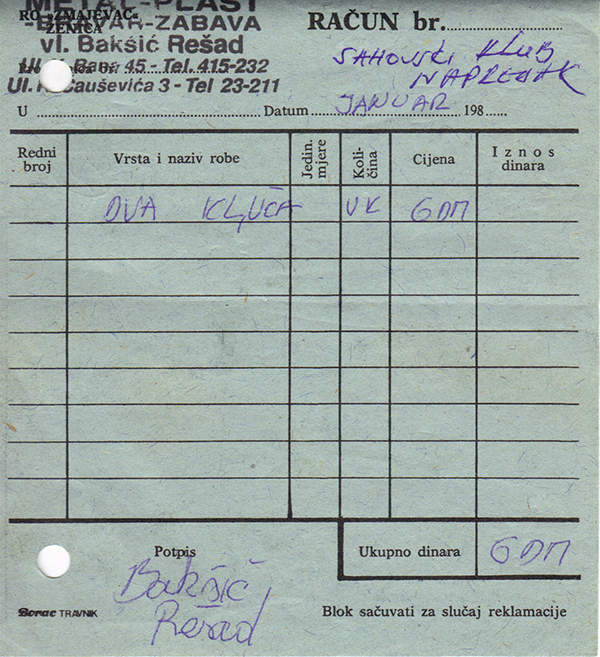 METAL-PLAST
RO „ZMAJEVAC“
-BRAVAR-ZABAVA
ZENICA
vl. Bakšić Rešad
Bana 45 - Tel. 415-232
Čauševića 3 - Tel 23-211
RAČUN br.
SAHOVSKI KLUB
NAPREDAK
U Datum JANUAR 198
Redni broj Vrsta i naziv robe Jedin. mjere Koli-čina Cijena Iznos dinara
DVA KLJUČA VK 6DM
Potpis Ukupno dinara 6DM
Bakšić
Rešad
Borac TRAVNIK Blok sačuvati za slučaj reklamacije